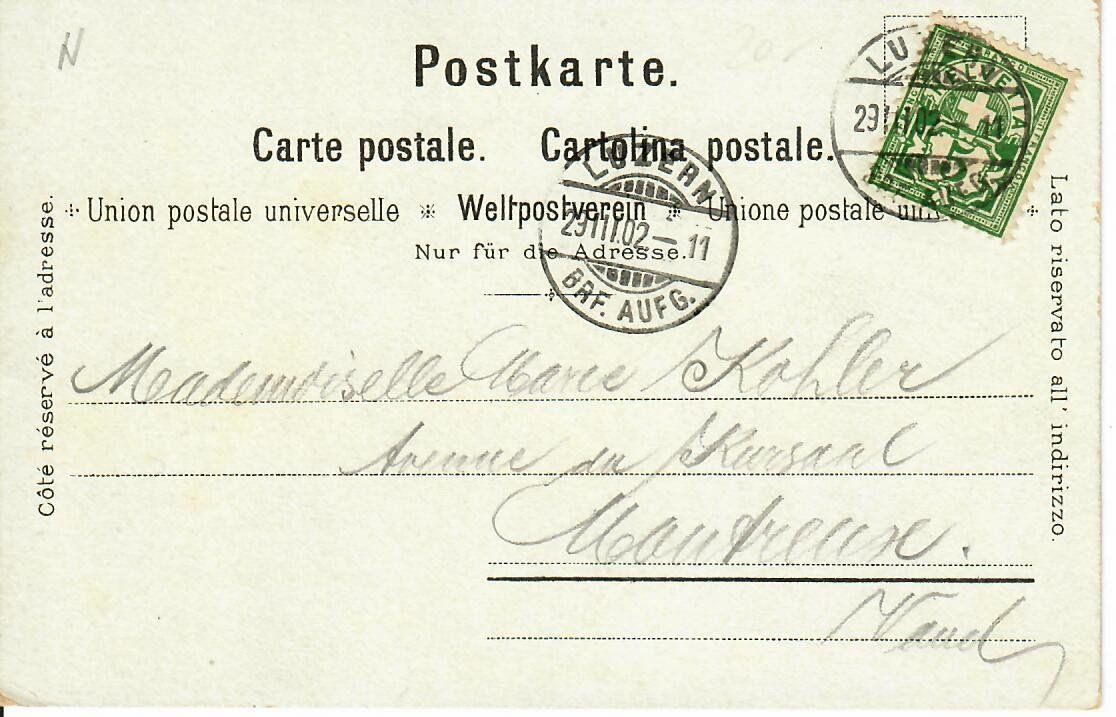 N
Postkarte.
Carte postale. Cartolina postale.
Union postale universelle * Weltpostverein * Unione postale
Nur für die Adresse.
Côté réservé à l'adresse.
Lato riservato all' indirizzo.
LUZERN
29 III.02 — 11
BRF. AUFG.
LUZERN
29 III 02 11
HELVETIA
FRANCO
5
Mademoiselle Marie Kohler
Avenue du Kursaal
Montreux.
Vaud